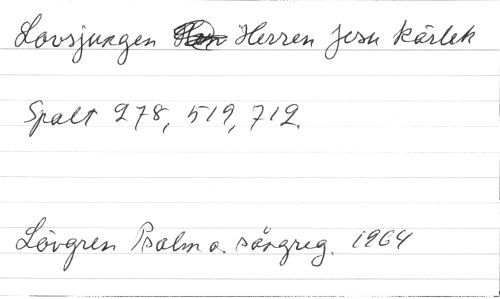 Lovsjungen Herren Jesu kärlek
Spalt 278, 519, 712.
Lövgren Psalm o. sångreg. 1964